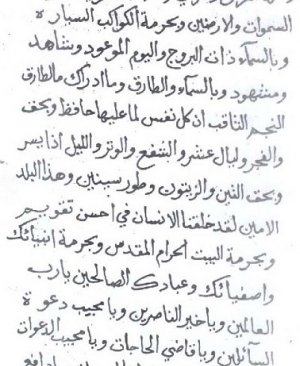 السموات والارضين وبحرمة الكواكب السيارة
وبالسمآء ذات البروج واليوم الموعود وشاهد
ومشهود وبالسمآء والطارق وما ادراك ما الطارق
النجم الثاقب ان كل نفس لما عليها حافظ وبحق
والفجر وليال عشر والشفع والوتر والليل اذا يسر
وبحق التين والزيتون وطور سينين وهذا البلد
الامين لقد خلقنا الانسان في احسن تقويم
وبحرمة البيت الحرام المقدس وبحرمة انبيائك
واصفيائك وعبادك الصالحين يارب
العالمين وياخير الناصرين ويا مجيب دعوة
السآئلين ويا قاضي الحاجات ويا مجيب الدعوات